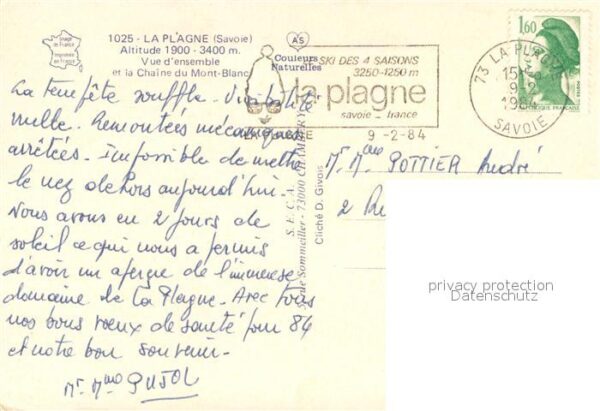 1025 - LA PLAGNE (Savoie)
Altitude 1900 - 3400 m.
Vue d'ensemble
et la Chaîne du Mont-Blanc
AS
Couleurs
Naturelles
SKI DES 4 SAISONS
3250-1250 m
la plagne
savoie - france
9 -2-84
73 LA PLAGNE
15H
9-2
1984
SAVOIE
1,60
La tempête souffle. Visibilité
nulle. Remontées mécaniques
arrêtées. Impossible de mettre
le nez dehors aujourd'hui.
Nous avons eu 2 jours de
soleil ce qui nous a permis
d'avoir un aperçu de l'immense
domaine de La Plagne. Avec tous
nos bons voeux de santé pour 84
et notre bon souvenir.
Mr Mme PUJOL
S.E.C.A.
Sommeiller - 73000 CHAMBÉRY
Cliché D. Givois
Mr Mme POTTIER André
2 Ru
privacy protection
Datenschutz